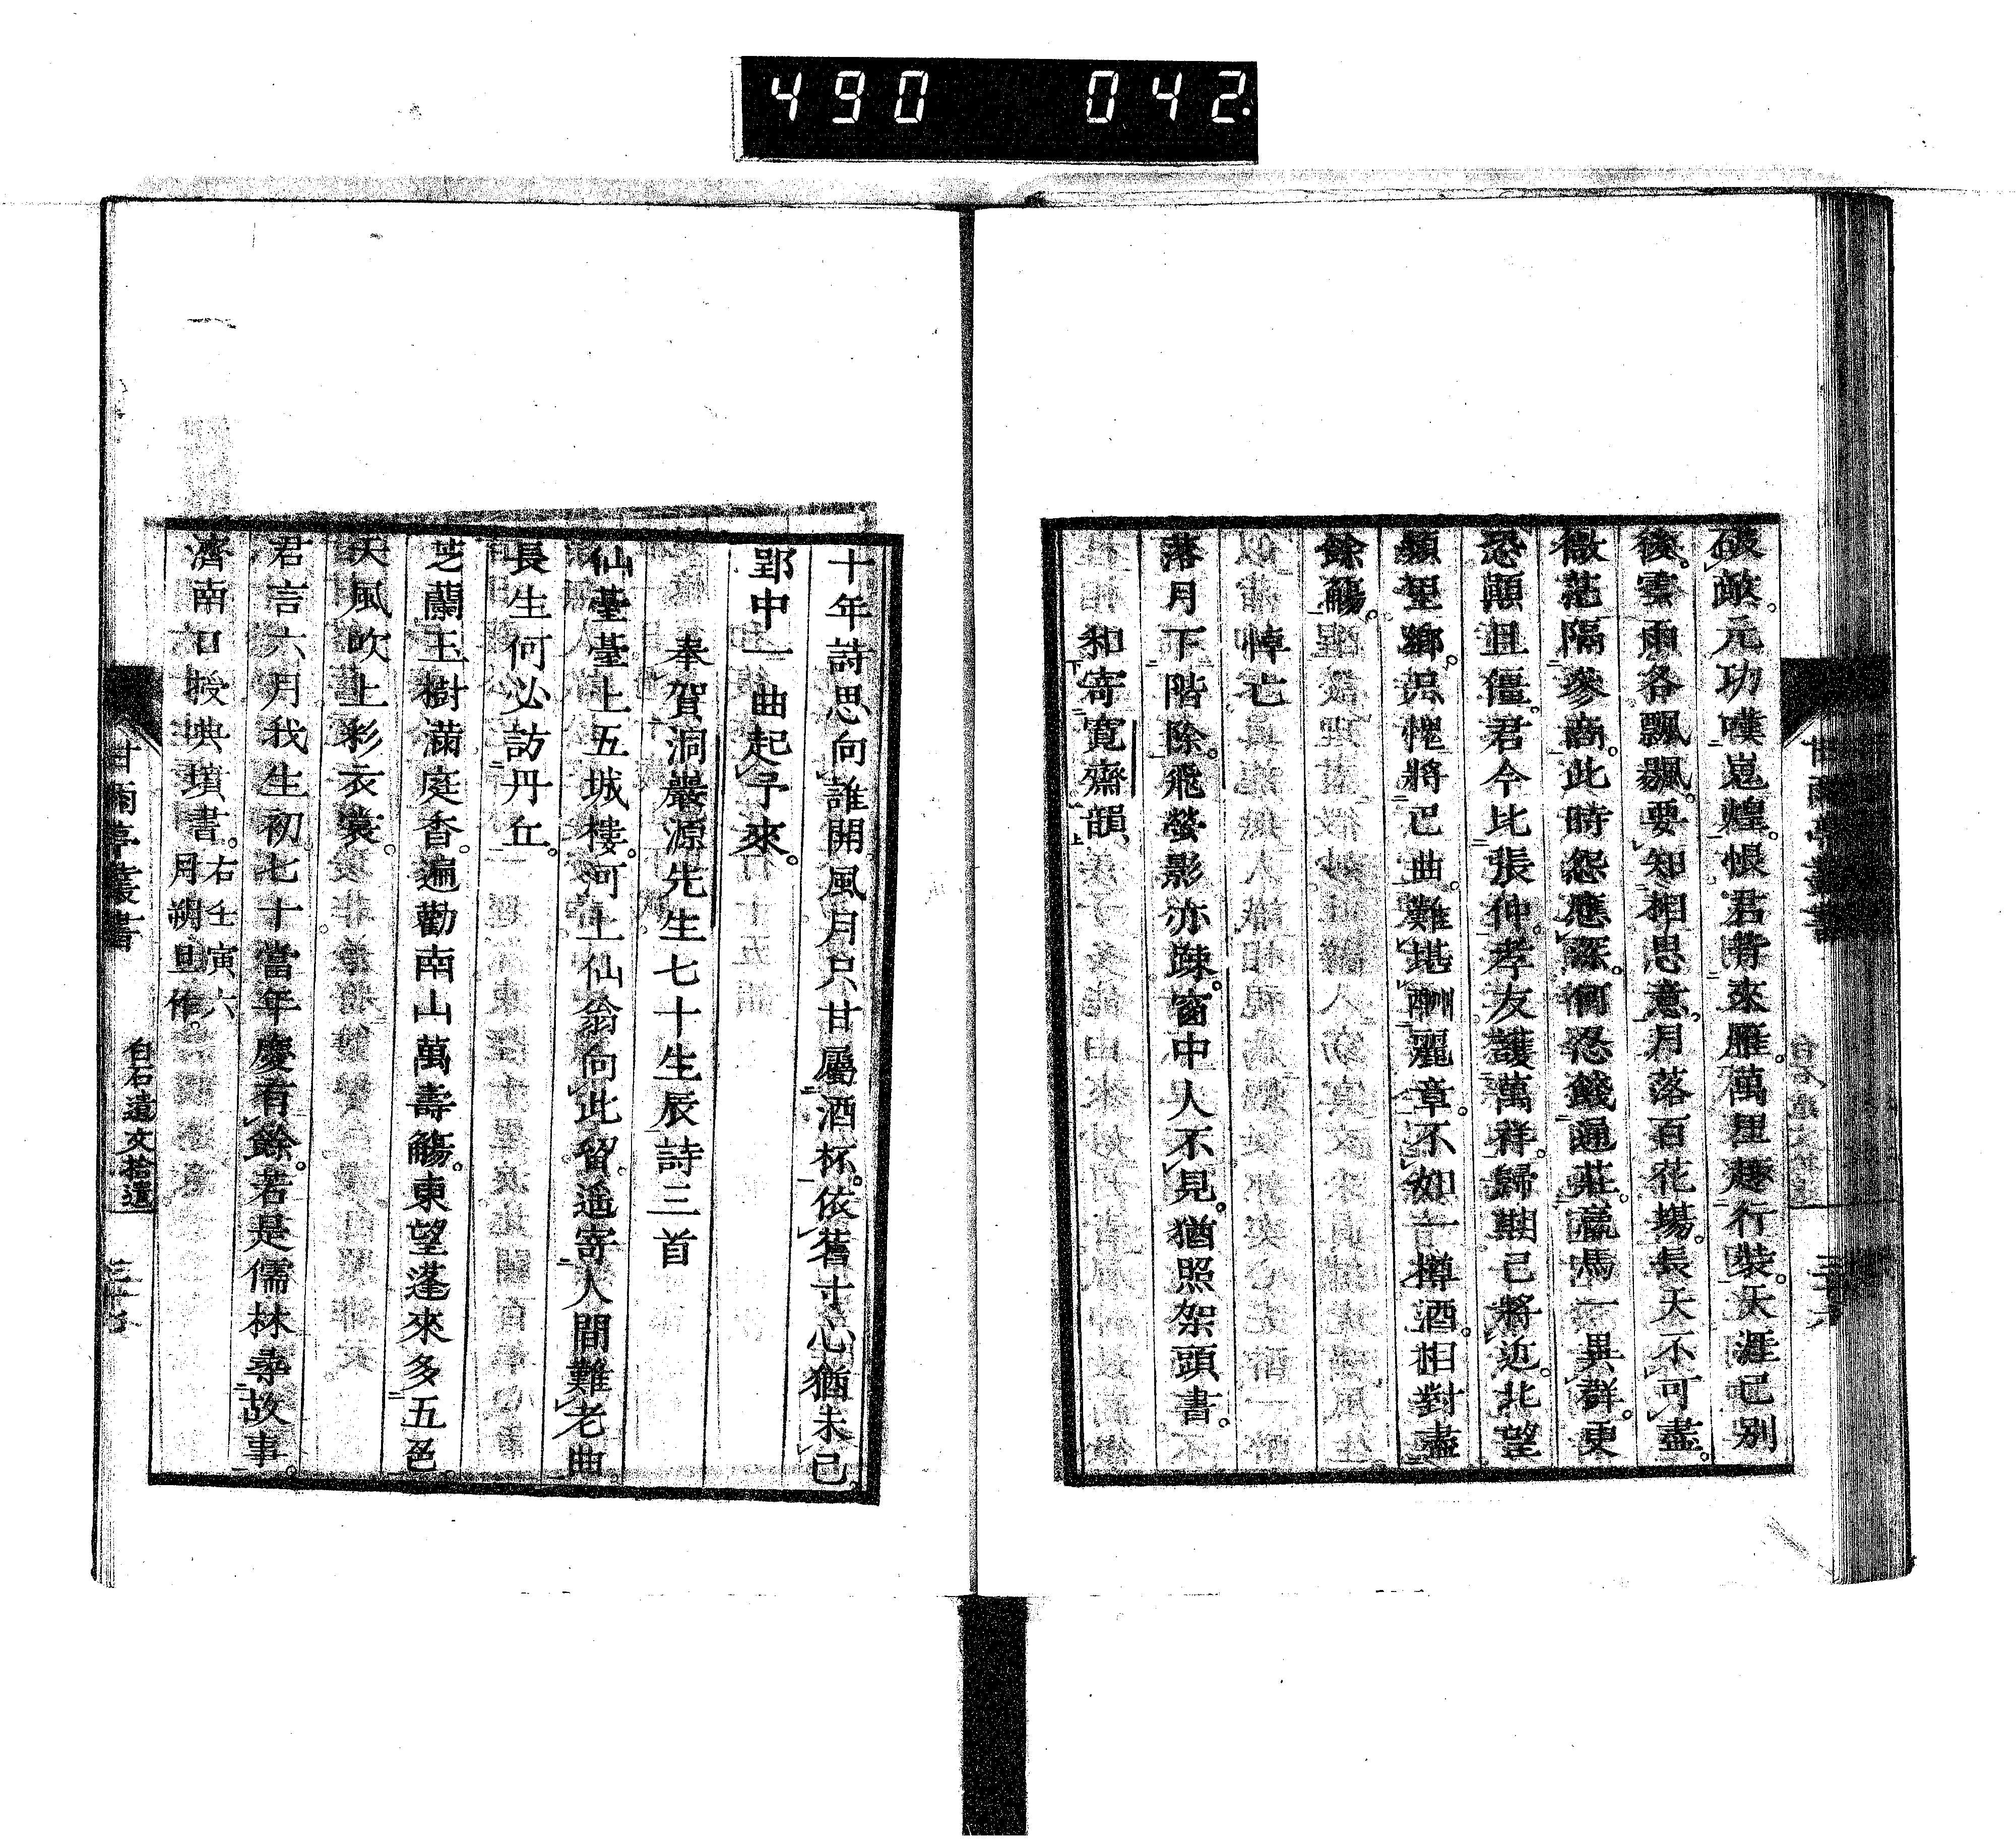 490 042.
破敵。元功嘆嵬煌。恨君背來雁。萬里趣行裝。天涯已別
後。雲雨各飄颻。要知相思意。月落百花場。長天不可盡。
微茫隔參商。此時怨應深。何忍餞通莊。羸馬一異群。更
恐顛且僵。君今比張仲。孝友護萬祥。歸期已將近。北望
類望鄉。只愧將己曲。難堪酬麗章。不如一樽酒。相對盡
餘觴。
悼亡
落月下階除。飛螢影亦疎。窗中人不見。猶照架頭書。
和寄寛齋韻、
十年詩思向誰開風月只甘屬酒杯。依舊寸心猶未已。
郢中一曲起予來。
奉賀洞巖源先生七十生辰詩三首
仙臺臺上五城樓。河上仙翁向此留。遙寄人間難老曲
長生何必訪丹丘。
芝蘭玉樹滿庭香。遍勸南山萬壽觴。東望蓬來多五色。
天風吹上彩衣裳。
君言六月我生初。七十當年慶有餘。若是儒林尋故事。
濟南口授典墳書。右壬寅六
月朔旦作。
甘雨亭叢書
白石遺文拾遺